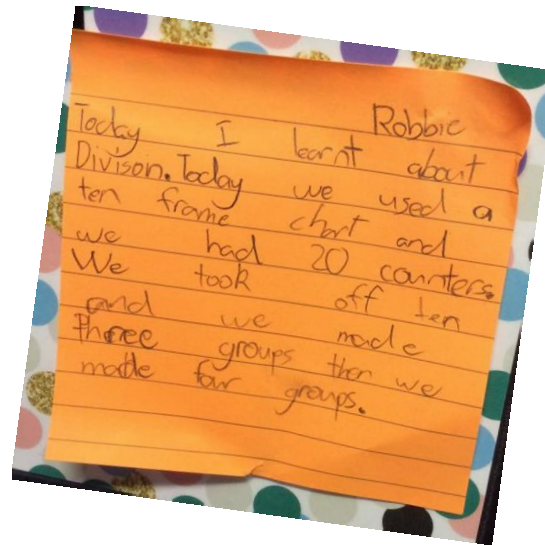 Robbie
Today I learnt about
Divison. Today we used a
ten frame chart and
we had 20 counters.
We took off ten
and we made
Phree groups then we
made four groups.